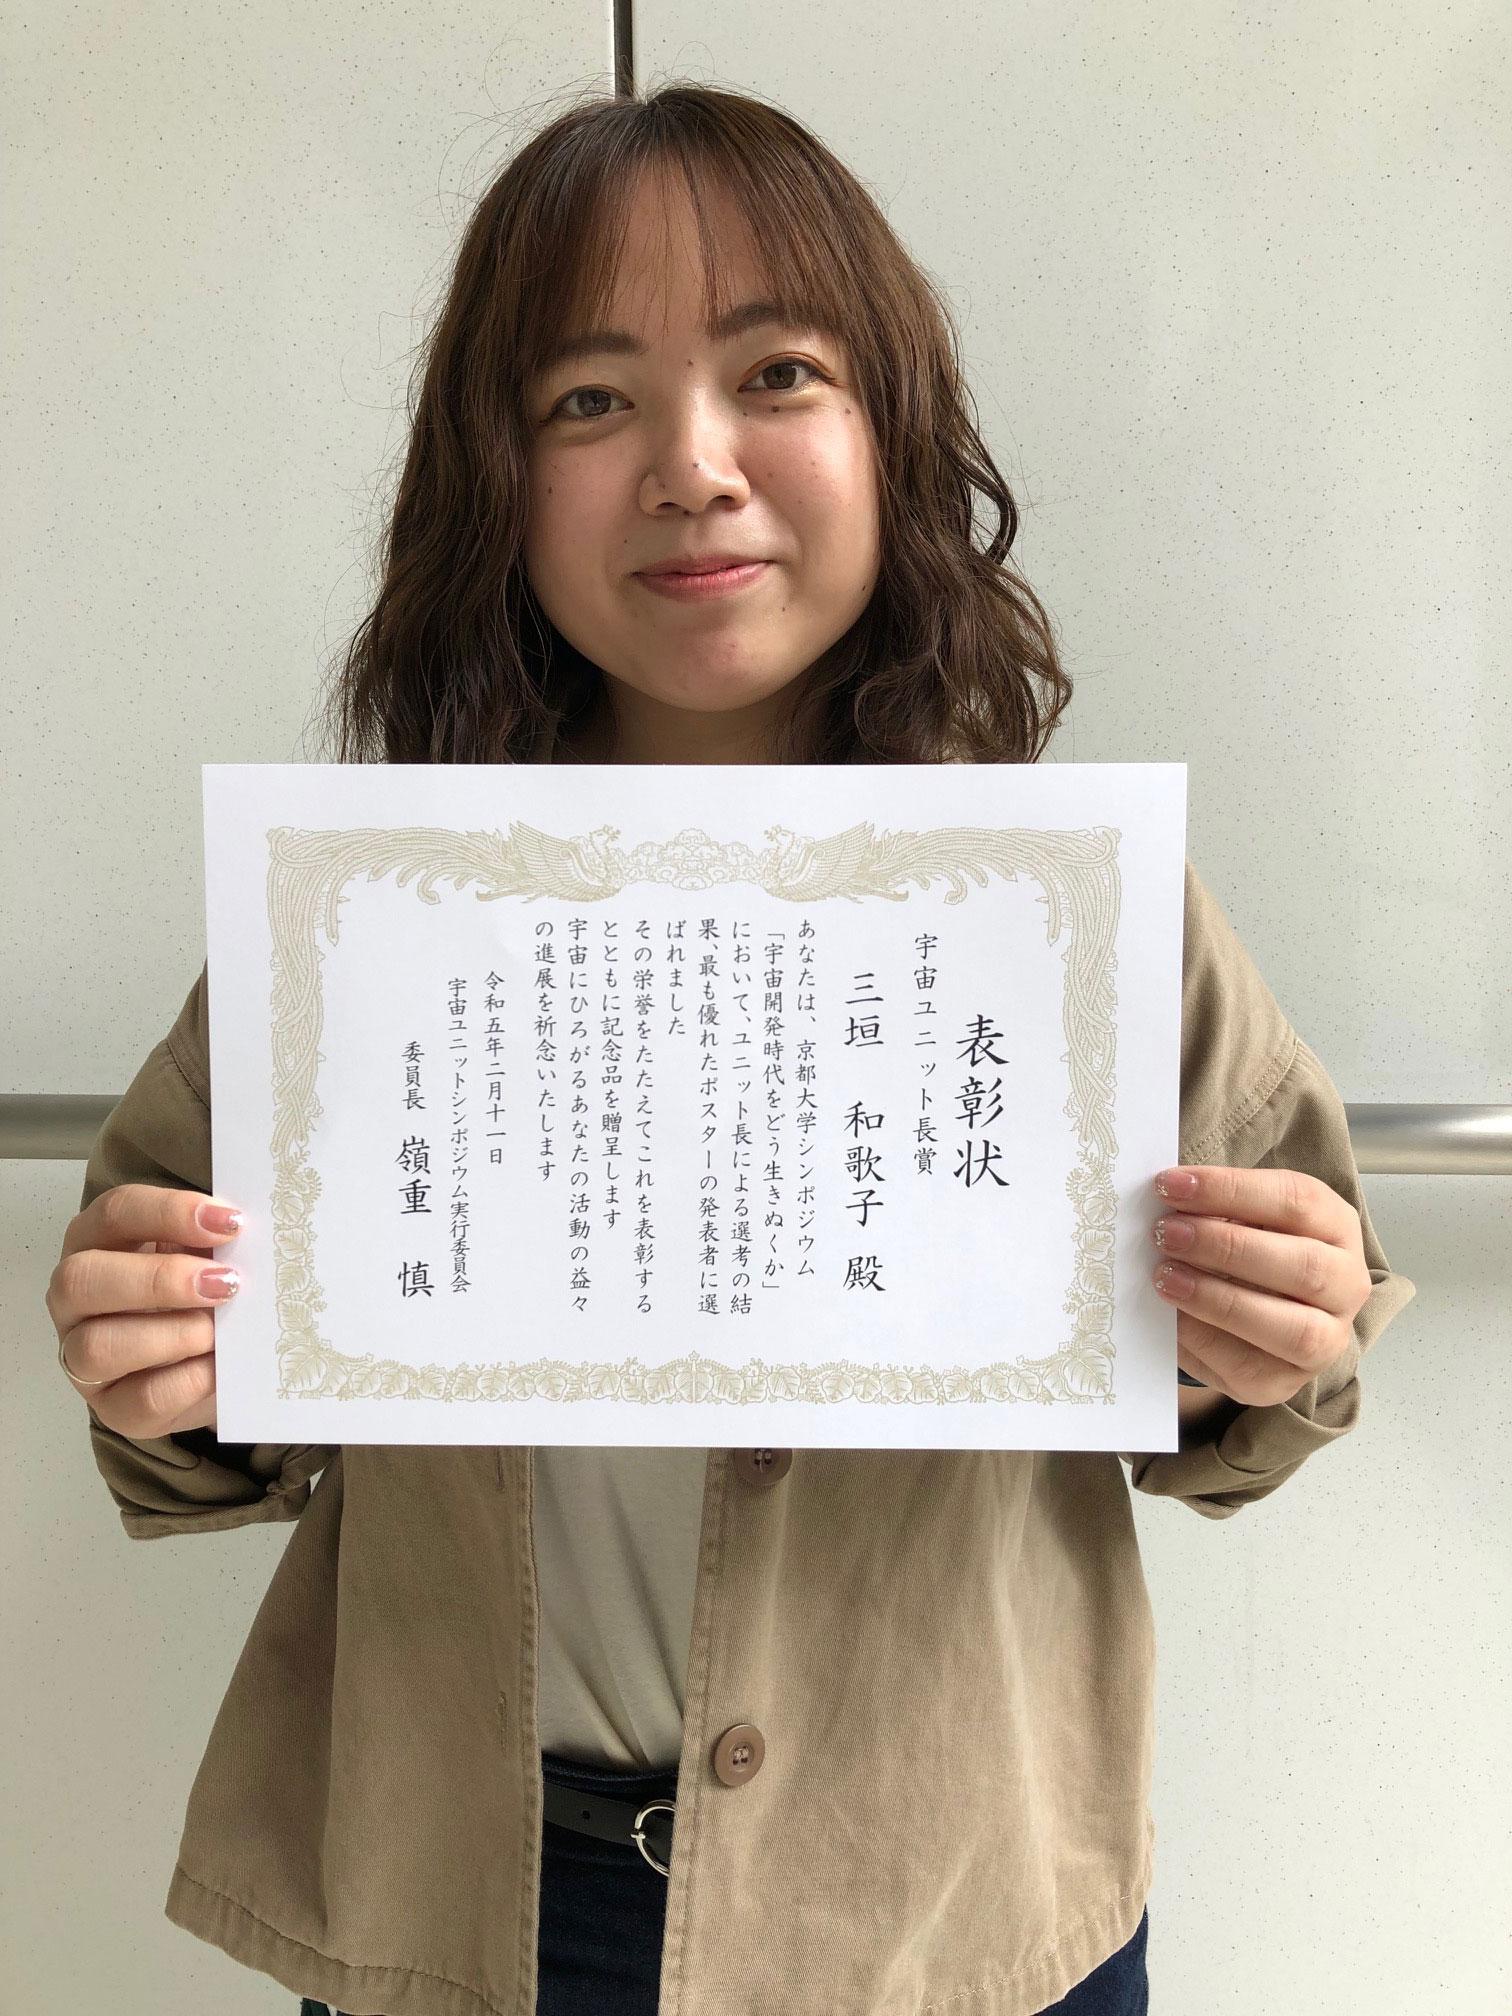 表彰状
宇宙ユニット長賞
三垣 和歌子 殿
あなたは、京都大学シンポジウム
「宇宙開発時代をどう生きぬくか」
において、ユニット長による選考の結
果、最も優れたポスターの発表者に選
ばれました
その栄誉をたたえてこれを表彰する
とともに記念品を贈呈します
宇宙にひろがるあなたの活動の益々
の進展を祈念いたします
令和五年二月十一日
宇宙ユニットシンポジウム実行委員会
委員長 嶺重 慎